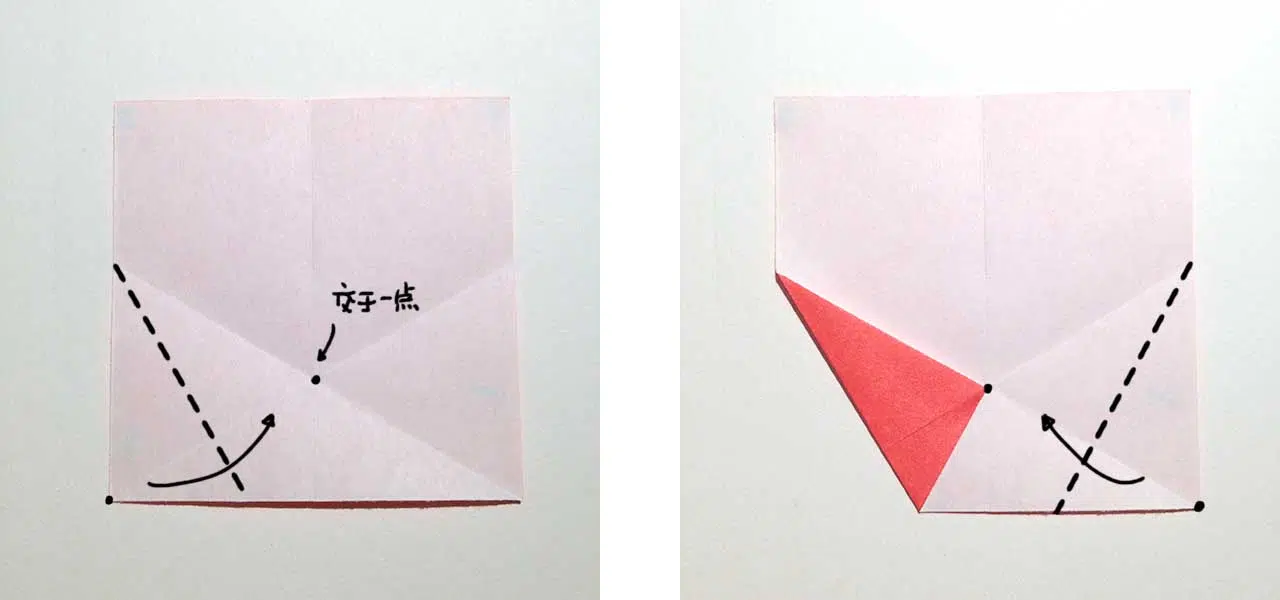 交于一点